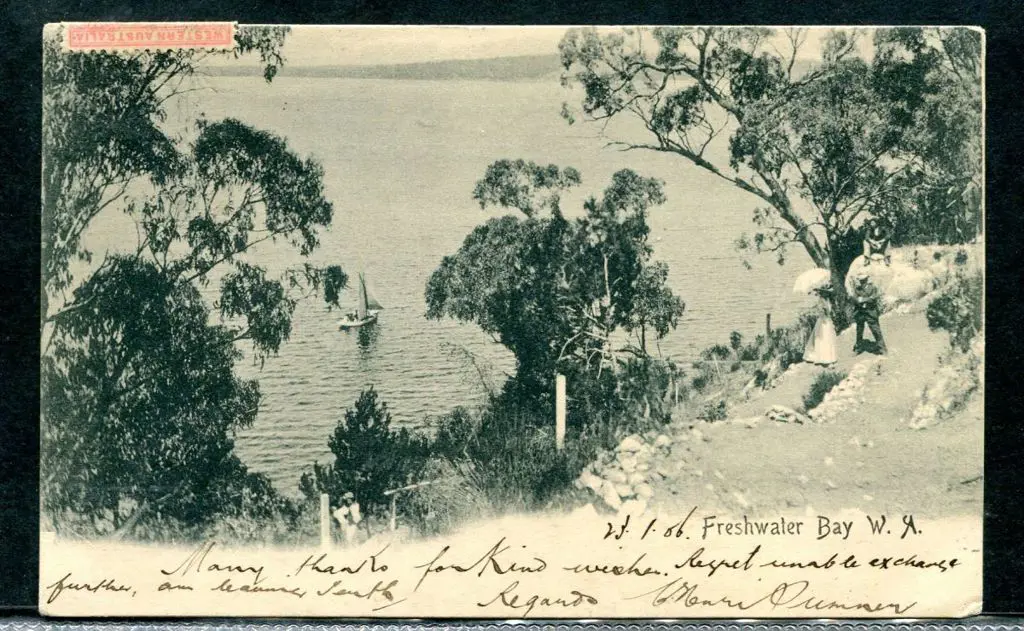 WESTERN AUSTRALIA
1.06. Freshwater Bay W. A.
Many thanks for Kind wishes. Regret unable exchange
further, am leaving
Regards